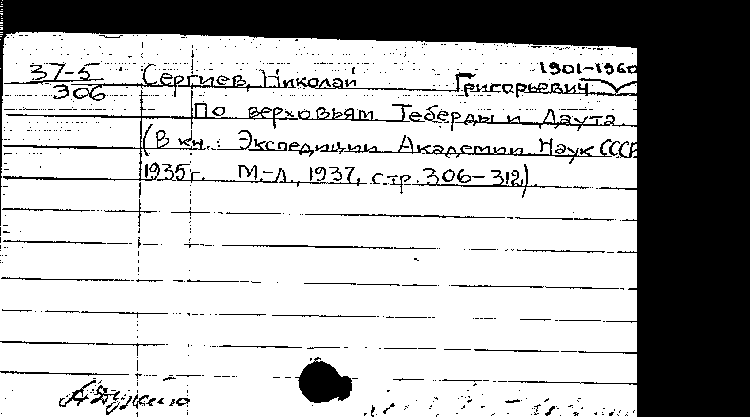 1901-1960
37-5 Сергиев, Николай Григорьевич
306
По верховьям Теберды и Даута.
(В кн.: Экспедиции Академии Наук СССР
1935г. М.-Л., 1937, стр. 306-312).